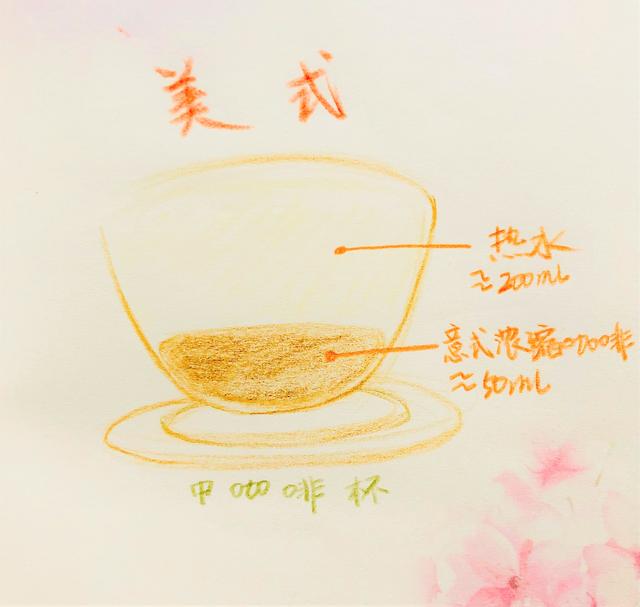 美式
热水
≈200ml
意式浓缩咖啡
≈50ml
中咖啡杯